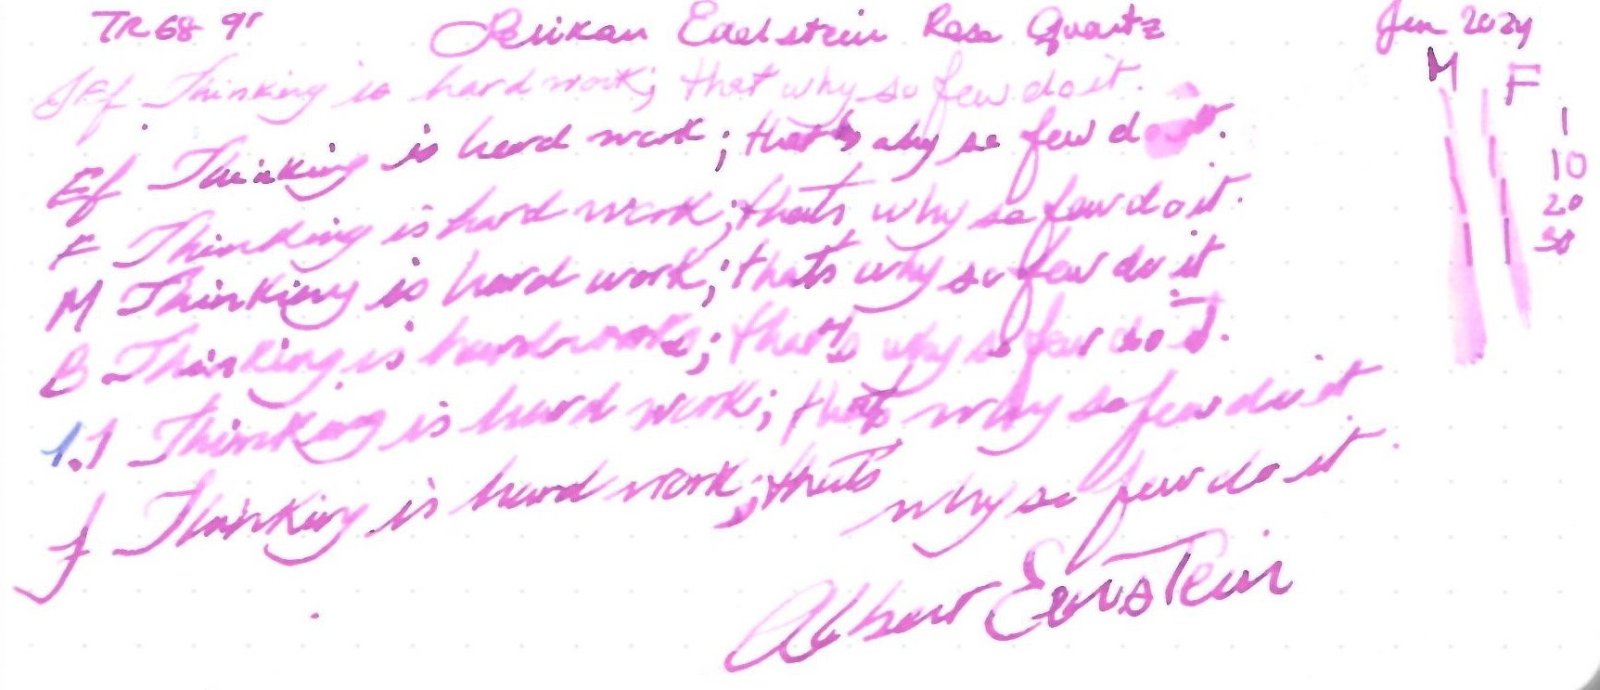 TR 68 gr Pelikan Edelstein Rose Quartz Jan 2024
M F
JEf Thinking is hard work; that why so few do it.
1
Ef Thinking is hard work; that's why so few d
10
F Thinking is hard work; thats why so few do it.
20
M Thinking is hard work; thats why so few do it
30
B Thinking is hard work; that's why so few do it.
1.1 Thinking is hard work; thats why so few do it
f Thinking is hard work; thats why so few do it.
Albert Einstein